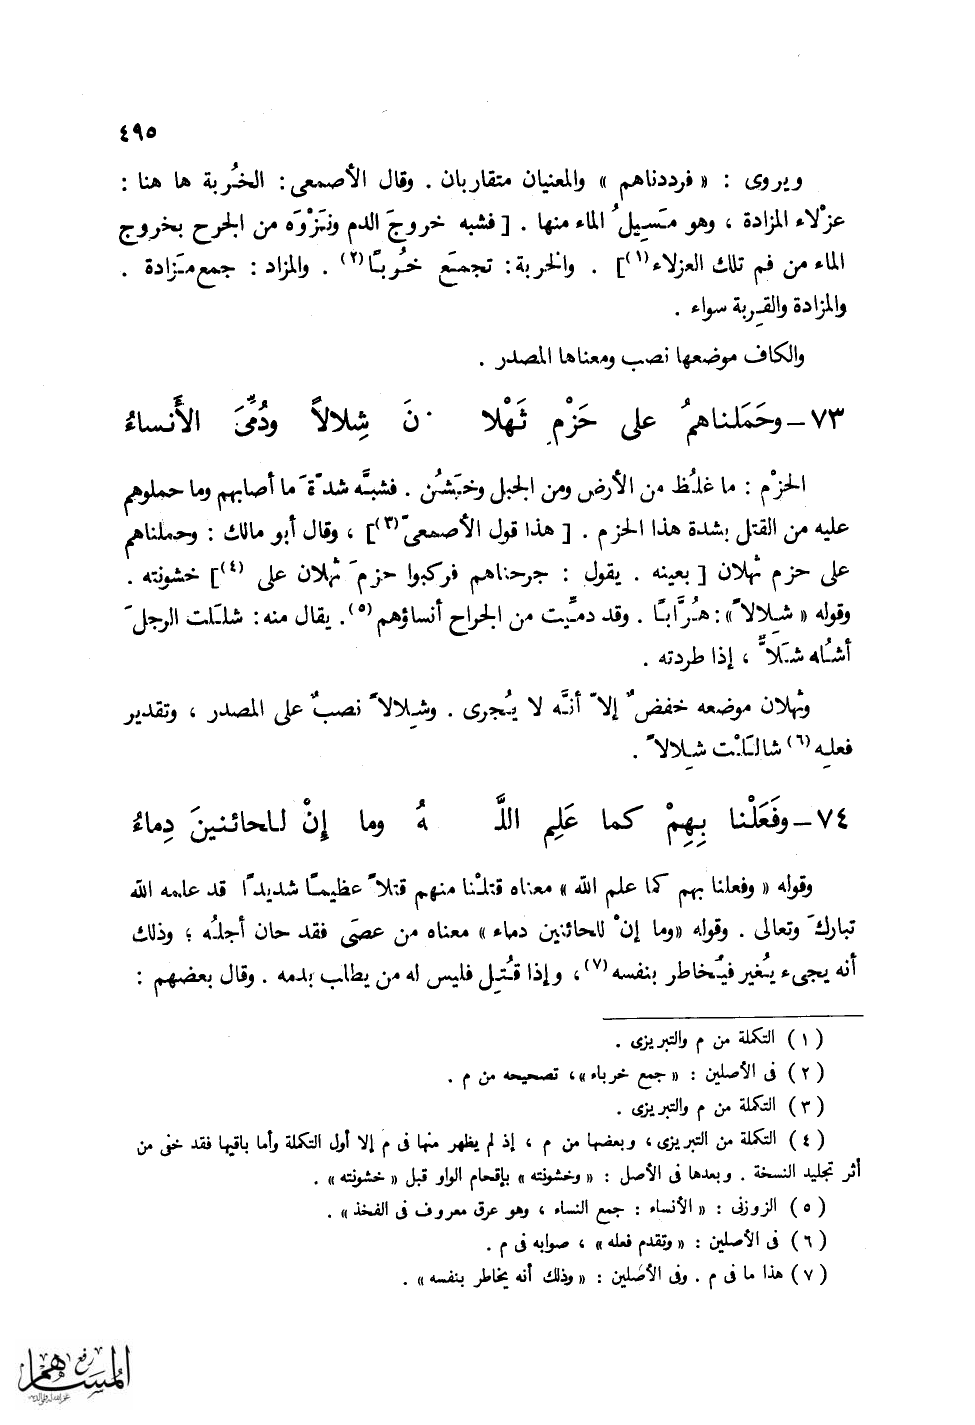 ٤٩٥
ويروى : « فرددناهم » والمعنيان متقاربان . وقال الأصمعى : الخُربة ها هنا :
عزْلاء المزادة ، وهو مَسِيلُ الماء منها . [ فشبه خروجَ الدم ونَزْوَه من الجرح بخروج
الماء من فم تلك العزلاء (١)] . والخربة : تجمَع خُرَبًا (٢) . والمزاد : جمع مَزادة .
والمزادة والقِربة سواء .
والكاف موضعها نصب ومعناها المصدر .
٧٣ – وحَمَلناهمُ على حَزْمِ ثَهْلا نَ شِلالاً ودُمِّىَ الأَنساءُ
الحزْم : ما غلُظ من الأرض ومن الجبل وخشُن . فشبَّه شدّةَ ما أصابهم وما حملوهم
عليه من القتل بشدة هذا الحزم . [ هذا قول الأصمعىّ (٣)] ، وقال أبو مالك : وحملناهم
على حزم ثهلان [ بعينه . يقول : جرحناهم فركبوا حزمَ ثهلان على (٤)] خشونته .
وقوله « شِلالاً » : هُرَّابًا . وقد دمِّيت من الجراح أنساؤهم (٥). يقال منه : شلَلت الرجلَ
أشُلُّه شَلاًّ ، إذا طردته .
وثهلان موضعه خفضٌ إلاّ أنَّه لا يُجرى . وشِلالاً نصبٌ على المصدر ، وتقدير
فعلِه (٦) شالَلْت شِلالاً .
٧٤ – وفَعَلْنا بِهِمْ كما عَلِم اللَّ هُ وما إِنْ لِلحائنينَ دِماءُ
وقوله « وفعلنا بهم كما علم الله » معناه قتلْنا منهم قتلاً عظيمًا شديدًا قد علمه الله
تبارك وتعالى . وقوله « وما إنْ للحائنين دماء » معناه من عصَى فقد حان أجلُه ؛ وذلك
أنه يجىء يُغير فيُخاطر بنفسه (٧)، وإذا قُتِل فليس له من يطلب بدمه . وقال بعضهم :
(١) التكملة من م والتبريزى .
(٢) فى الأصلين : « جمع خرباء »، تصحيحه من م .
(٣) التكملة من م والتبريزى .
(٤) التكملة من التبريزى ، وبعضها من م ، إذ لم يظهر منها فى م إلا أول التكملة وأما باقيها فقد خفى من
أثر تجليد النسخة . وبعدها فى الأصل : « وخشونته » بإقحام الواو قبل « خشونته » .
(٥) الزوزنى : « الأنساء : جمع النساء ، وهو عرق معروف فى الفخذ » .
(٦) فى الأصلين : « وتقدم فعله » ، صوابه فى م .
(٧) هذا ما فى م . وفى الأصلين : « وذلك أنه يخاطر بنفسه » .
رفع
المساهم